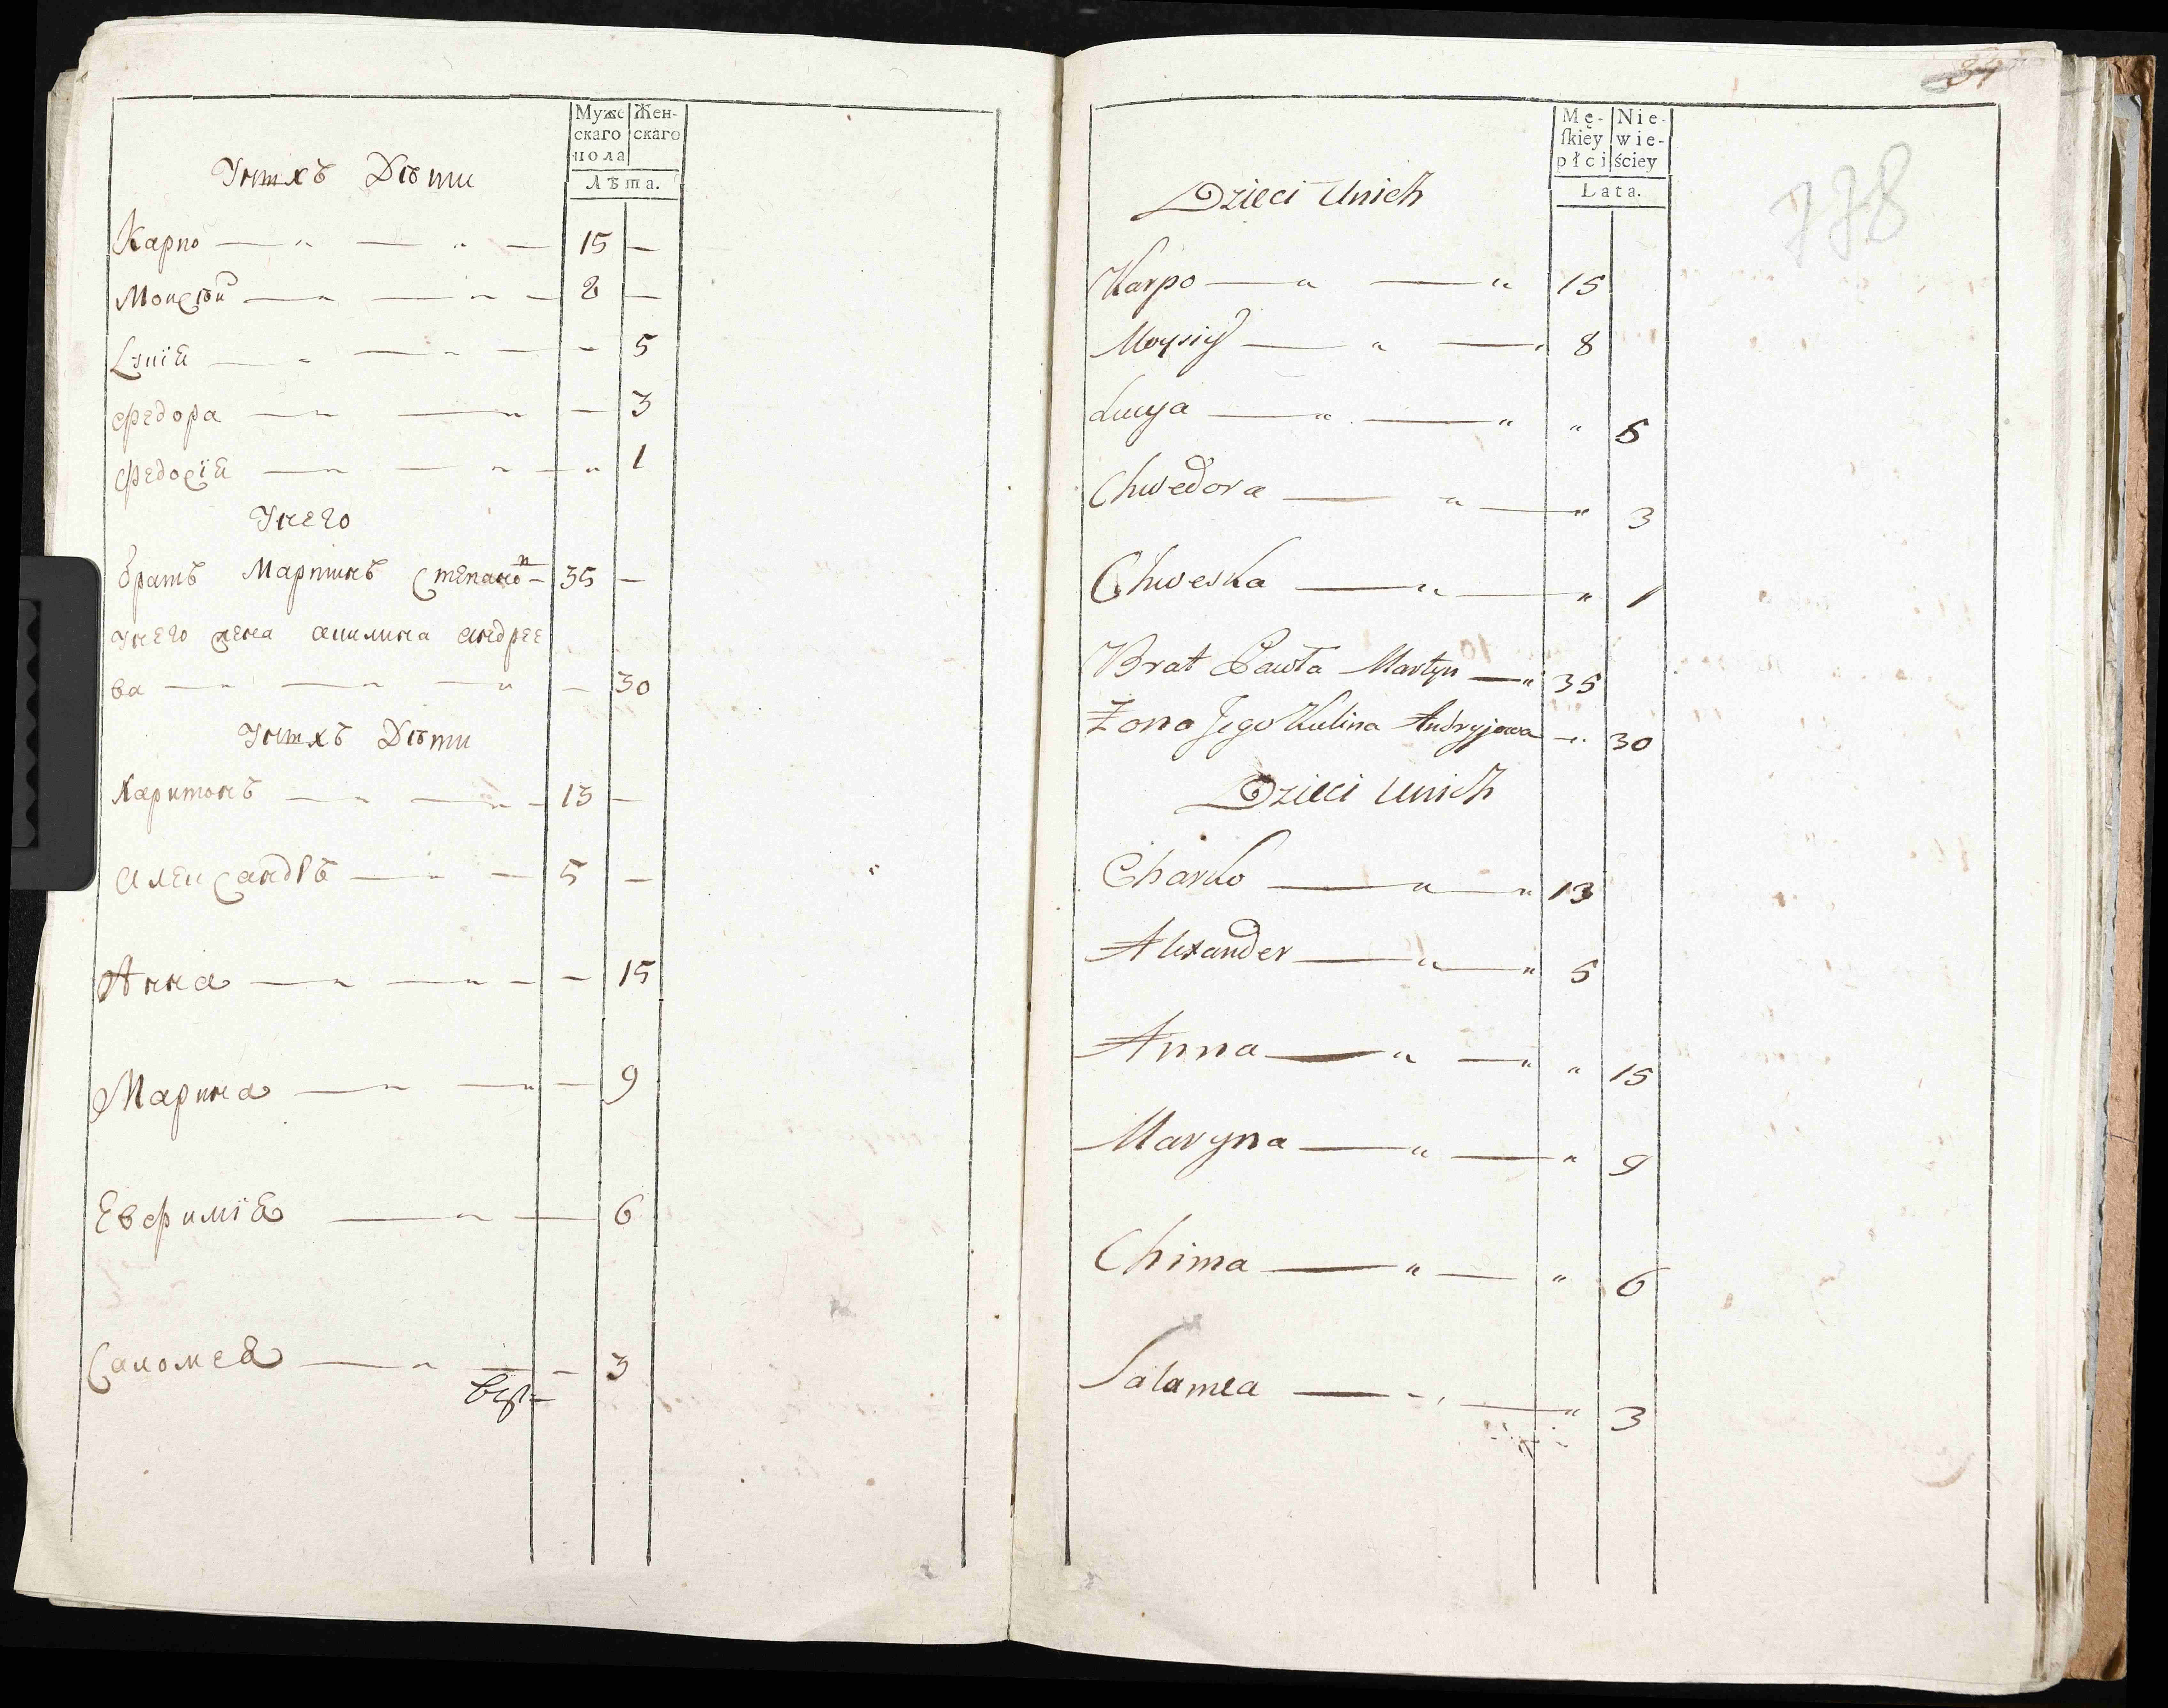 Муже
скаго
пола
Жен-
скаго
Лѣта.
Унихъ Дѣти
Карпо — „ — „ — 15 —
Моисѣй — „ — „ — 8 —
Луцїя — „ — „ — — 5
Федора — „ — „ — 3
Федосїя — „ — „ — „ 1
Унего
братъ Мартинъ Степано — 35 —
Унего жена акилина андрее
ва — „ — „ — „ — 30
Унихъ Дѣти
Харитонъ — „ — „ — 13 —
Александръ — „ — 5 —
Анна — „ — „ — — 15
Марина — „ — „ — 9
Евфимїя — „ — 6
Саломея — „ — — 3
34
Mę-
ſkiey
płci
Nie-
wie-
ściey
Lata.
778
Dzieci Unich
Karpo — „ — „ 15
Moysiy — „ — „ 8
Lucya — „ — „ „ 5
Chwedora — „ — „ 3
Chweska — „ — „ 1
Brat Pawła Martyn — „ 35
Żona Jego Kulina Andryjowa — „ 30
Dzieci Unich
Charko — „ — „ 13
Alexander — „ — „ 5
Anna — „ — „ „ 15
Maryna — „ — „ 9
Chima — „ — „ 6
Salamea — „ — „ 3